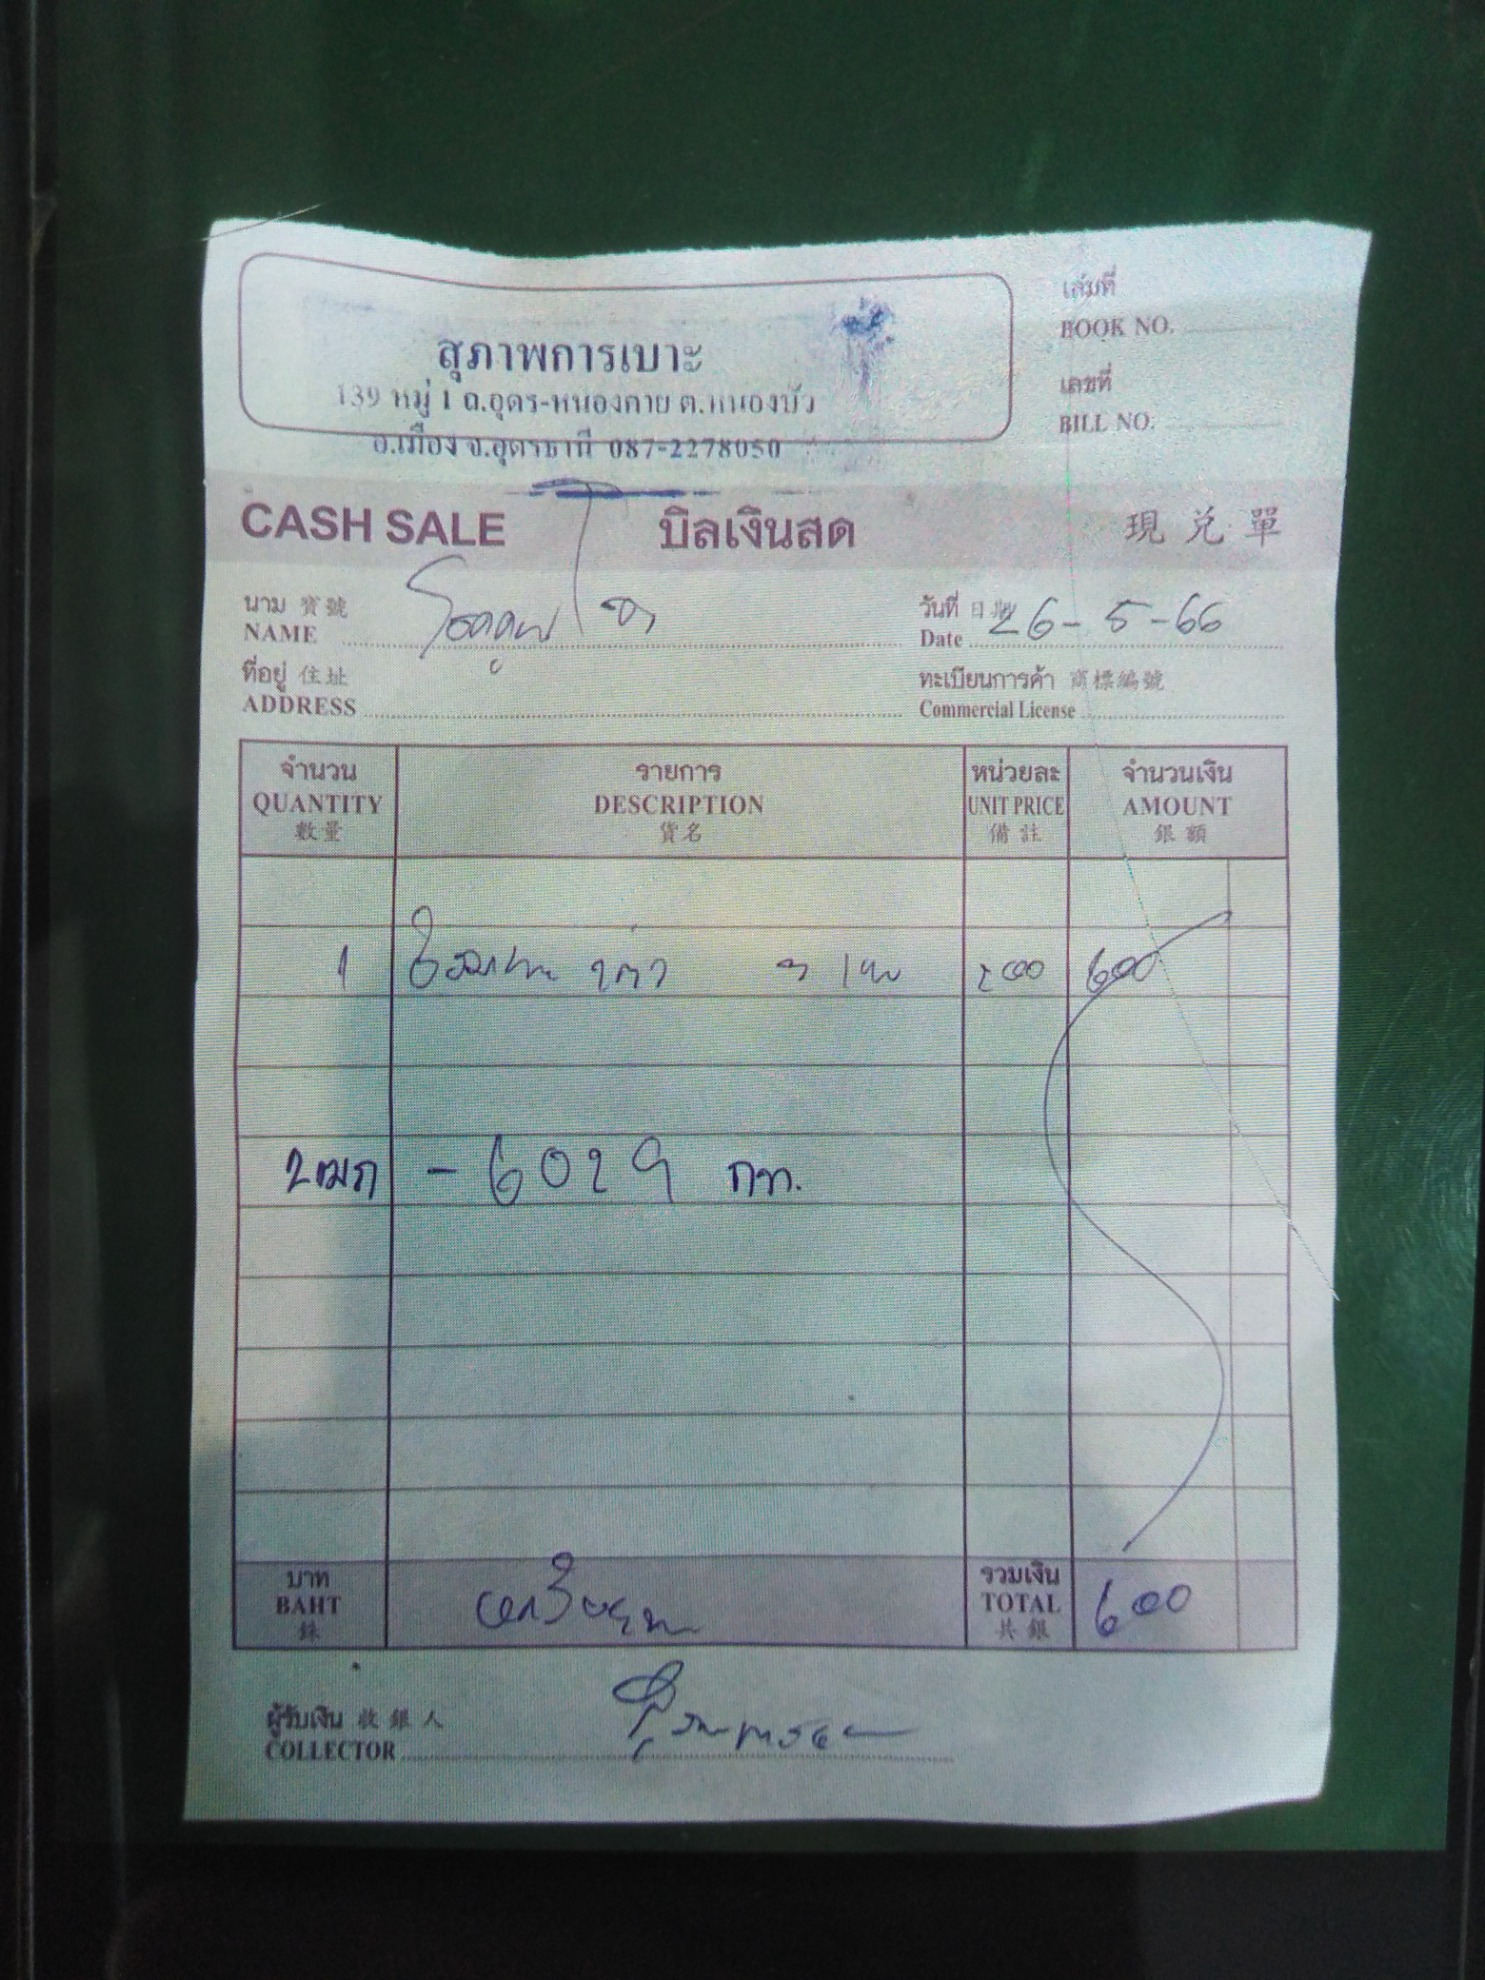 สุภาพการเบาะ
139 หมู่ 1 ถ.อุดร-หนองคาย ต.หนองบัว
อ.เมือง จ.อุดรธานี 087-2278050
เล่มที่
BOOK NO.
เลขที่
BILL NO.
CASH SALE บิลเงินสด 現兌單
นาม 寶號
NAME
วันที่ 日期 26-5-66
Date
ที่อยู่ 住址
ADDRESS
ทะเบียนการค้า 商標編號
Commercial License
จำนวน รายการ หน่วยละ จำนวนเงิน
QUANTITY DESCRIPTION UNIT PRICE AMOUNT
數量 貨名 備註 銀額
1 200 600
2ฒก - 6029 กท.
บาท รวมเงิน
BAHT TOTAL 600
銖 共銀
ผู้รับเงิน 收銀人
COLLECTOR